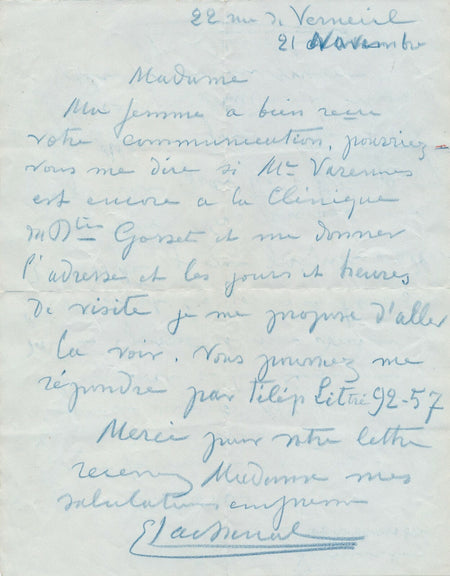 22 rue de Verneuil
21 Novembre
Madame
Ma femme a bien recu
votre communication, pourriez-
vous me dire si Mr Varennes
est encore a la Clinique
du Dr Gosset et me donner
l'adresse et les jours et heures
de visite je me propose d'aller
la voir. Vous pourrez me
répondre par Télép Littré 92-57
Merci pour votre lettre
recevez Madame mes
salutations empressées